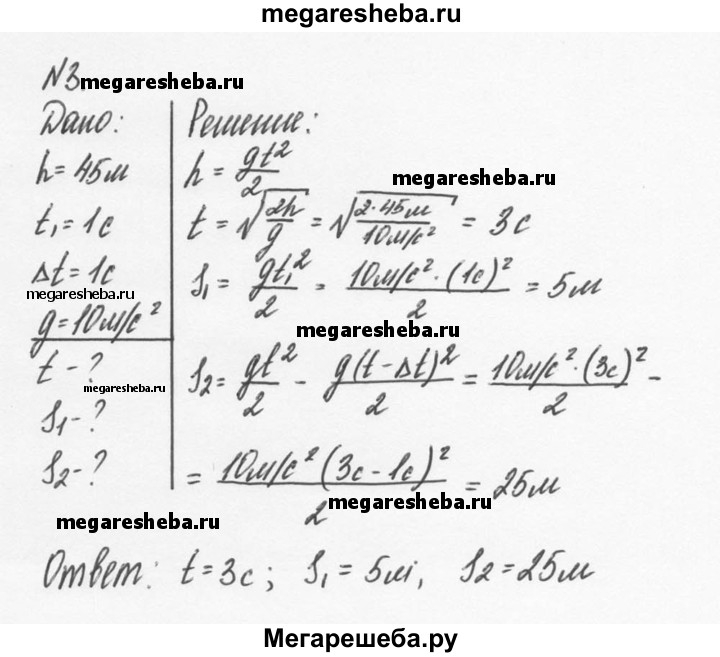 megaresheba.ru
N3. megaresheba.ru
Дано:
h = 45м
t₁ = 1с
Δt = 1с
megaresheba.ru
g = 10м/с²
t - ?
megaresheba.ru
S₁ - ?
S₂ - ?
megaresheba.ru
Решение:
h = gt²/2
megaresheba.ru
t = √(2h/g) = √(2·45м/10м/с²) = 3с
S₁ = gt₁²/2 = 10м/с²·(1с)²/2 = 5м
megaresheba.ru
S₂ = gt²/2 - g(t-Δt)²/2 = 10м/с²·(3с)²/2 -
= 10м/с²(3с-1с)²/2 = 25м
megaresheba.ru
Ответ: t = 3с; S₁ = 5м, S₂ = 25м
Мегарешеба.ру